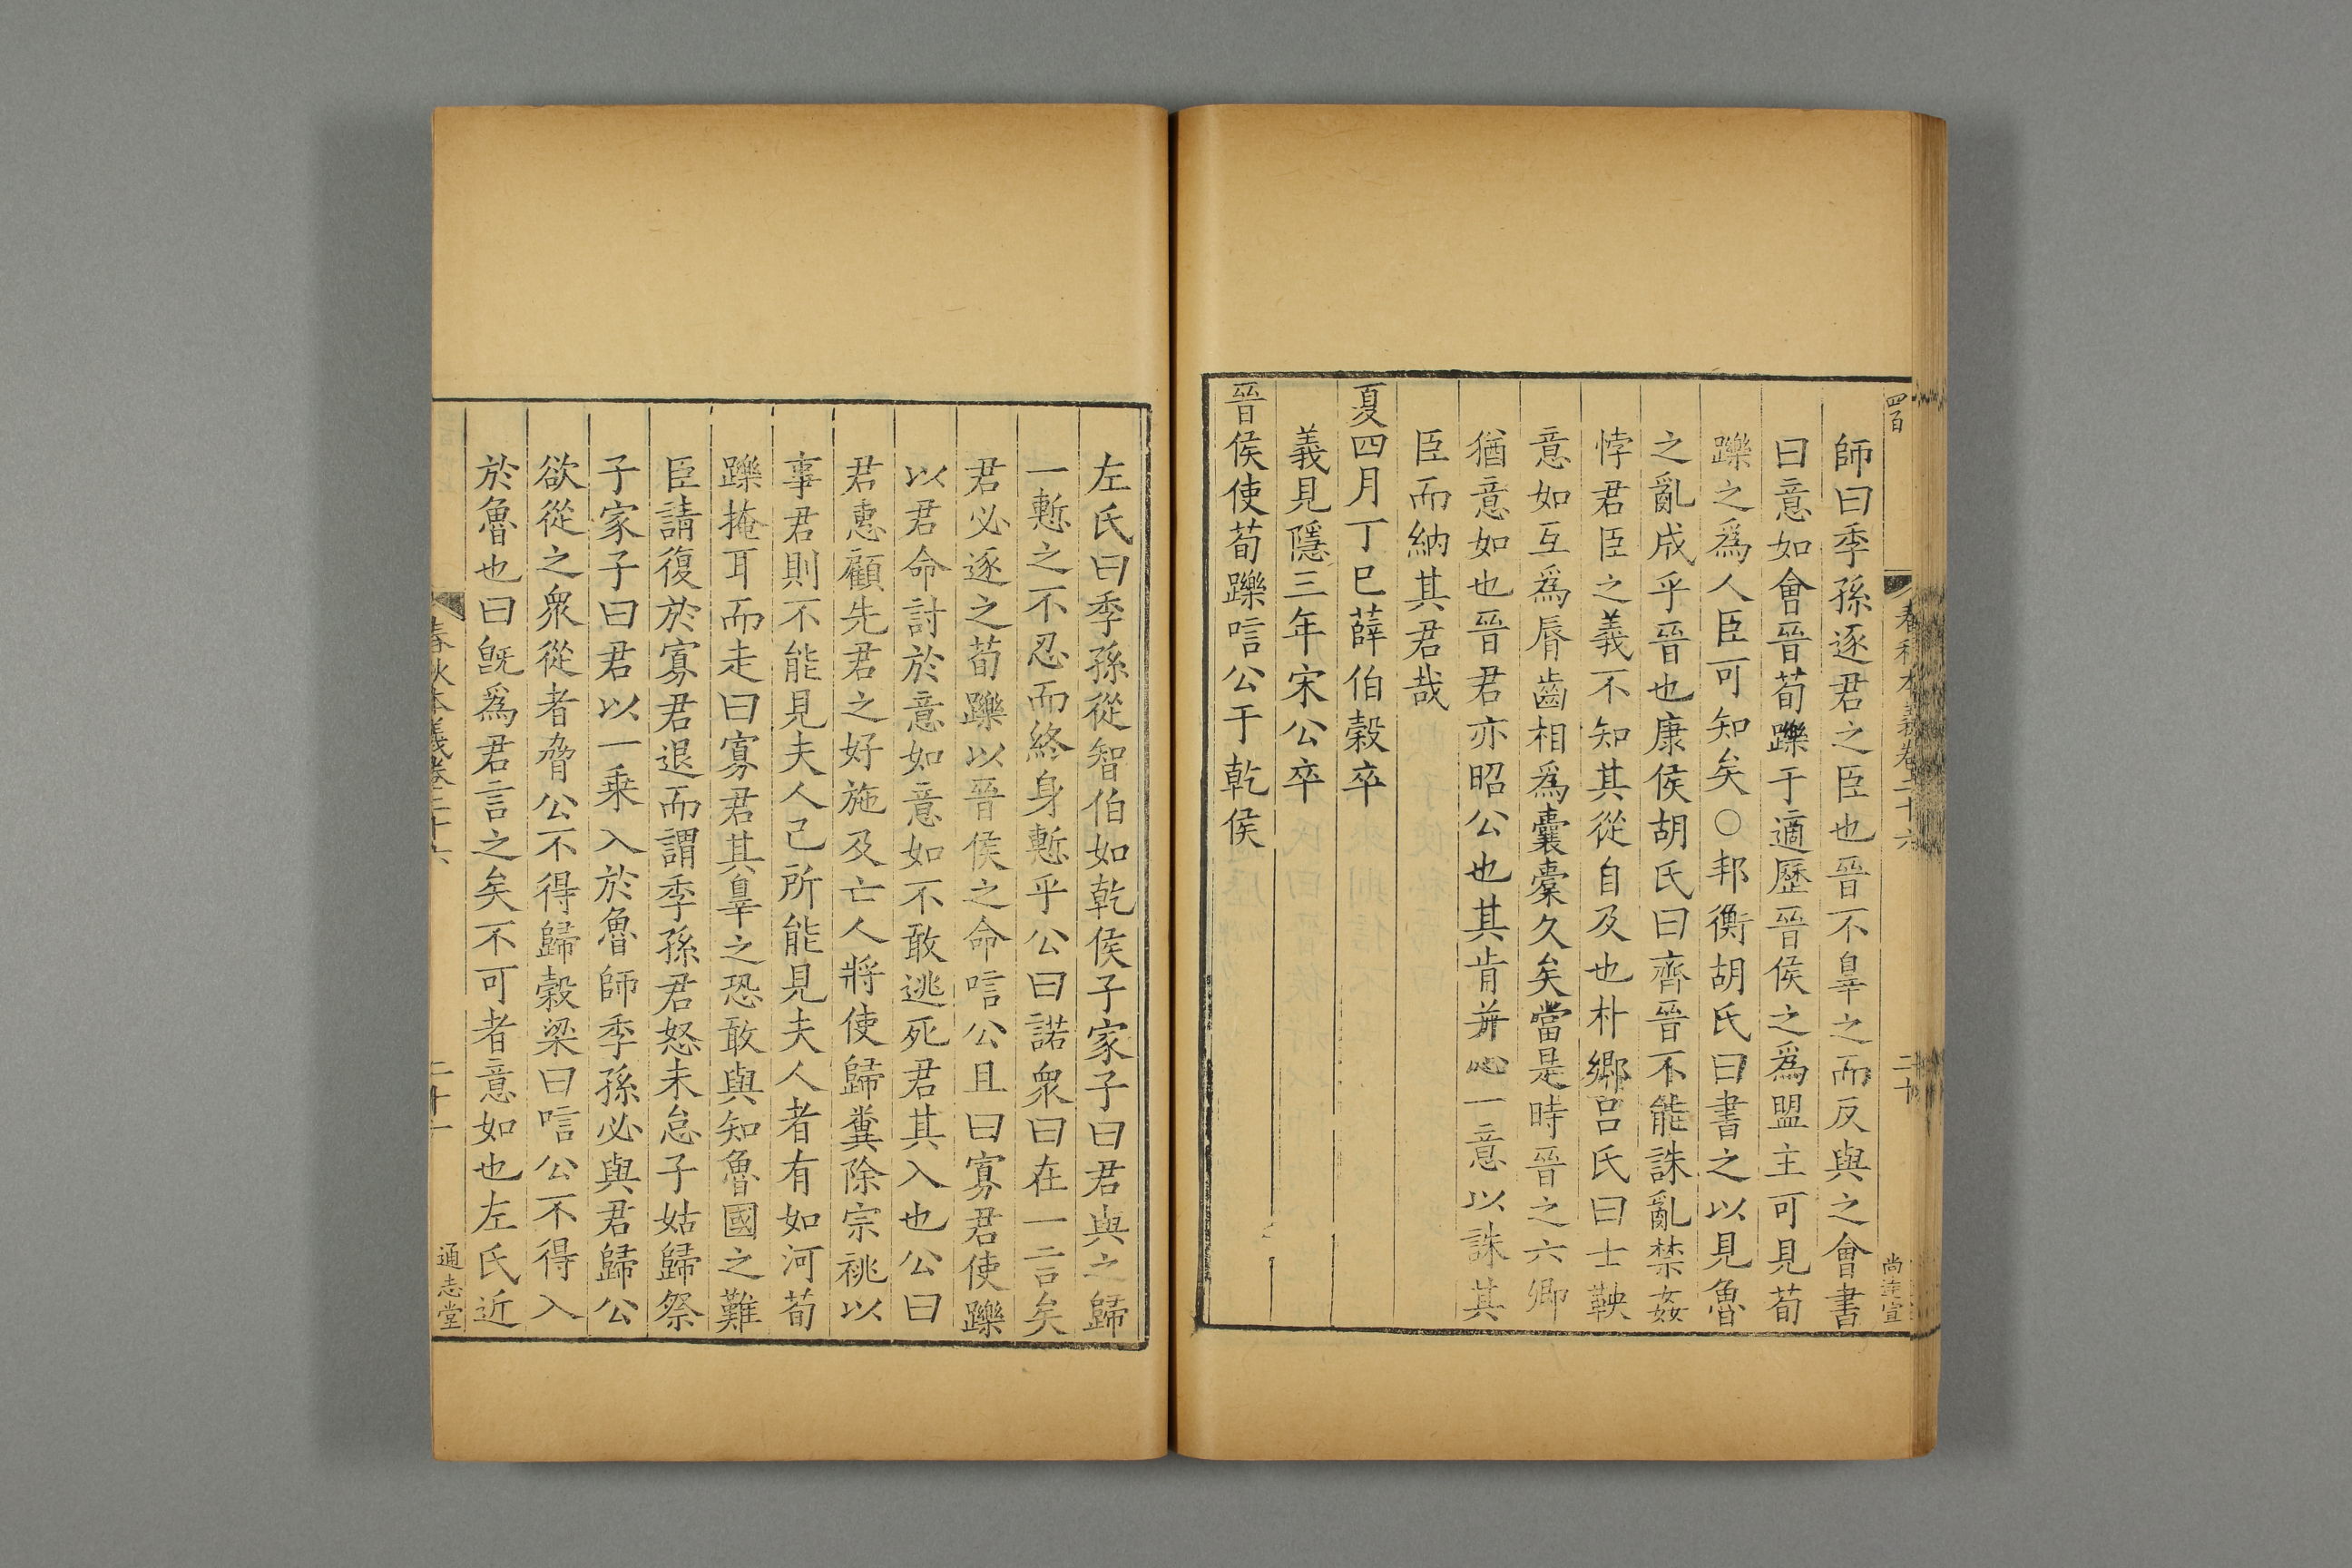 四百
春秋本義卷二十六
二十
尚達宣
師曰季孫逐君之臣也晉不辠之而反與之會書
曰意如會晉荀躒于適歷晉侯之爲盟主可見荀
躒之爲人臣可知矣○邦衡胡氏曰書之以見魯
之亂成乎晉也康侯胡氏曰齊晉不能誅亂禁姦
悖君臣之義不知其從自及也朴鄉呂氏曰士鞅
意如互爲脣齒相爲囊橐久矣當是時晉之六卿
猶意如也晉君亦昭公也其肯并心一意以誅其
臣而納其君哉
夏四月丁巳薛伯穀卒
義見隱三年宋公卒
晉侯使荀躒唁公于乾侯
左氏曰季孫從智伯如乾侯子家子曰君與之歸
一慙之不忍而終身慙乎公曰諾衆曰在一言矣
君必逐之荀躒以晉侯之命唁公且曰寡君使躒
以君命討於意如意如不敢逃死君其入也公曰
君惠顧先君之好施及亡人將使歸糞除宗祧以
事君則不能見夫人己所能見夫人者有如河荀
躒掩耳而走曰寡君其辠之恐敢與知魯國之難
臣請復於寡君退而謂季孫君怒未怠子姑歸祭
子家子曰君以一乗入於魯師季孫必與君歸公
欲從之衆從者脅公不得歸穀梁曰唁公不得入
於魯也曰旣爲君言之矣不可者意如也左氏近
春秋本義卷二十六
二十一
通志堂